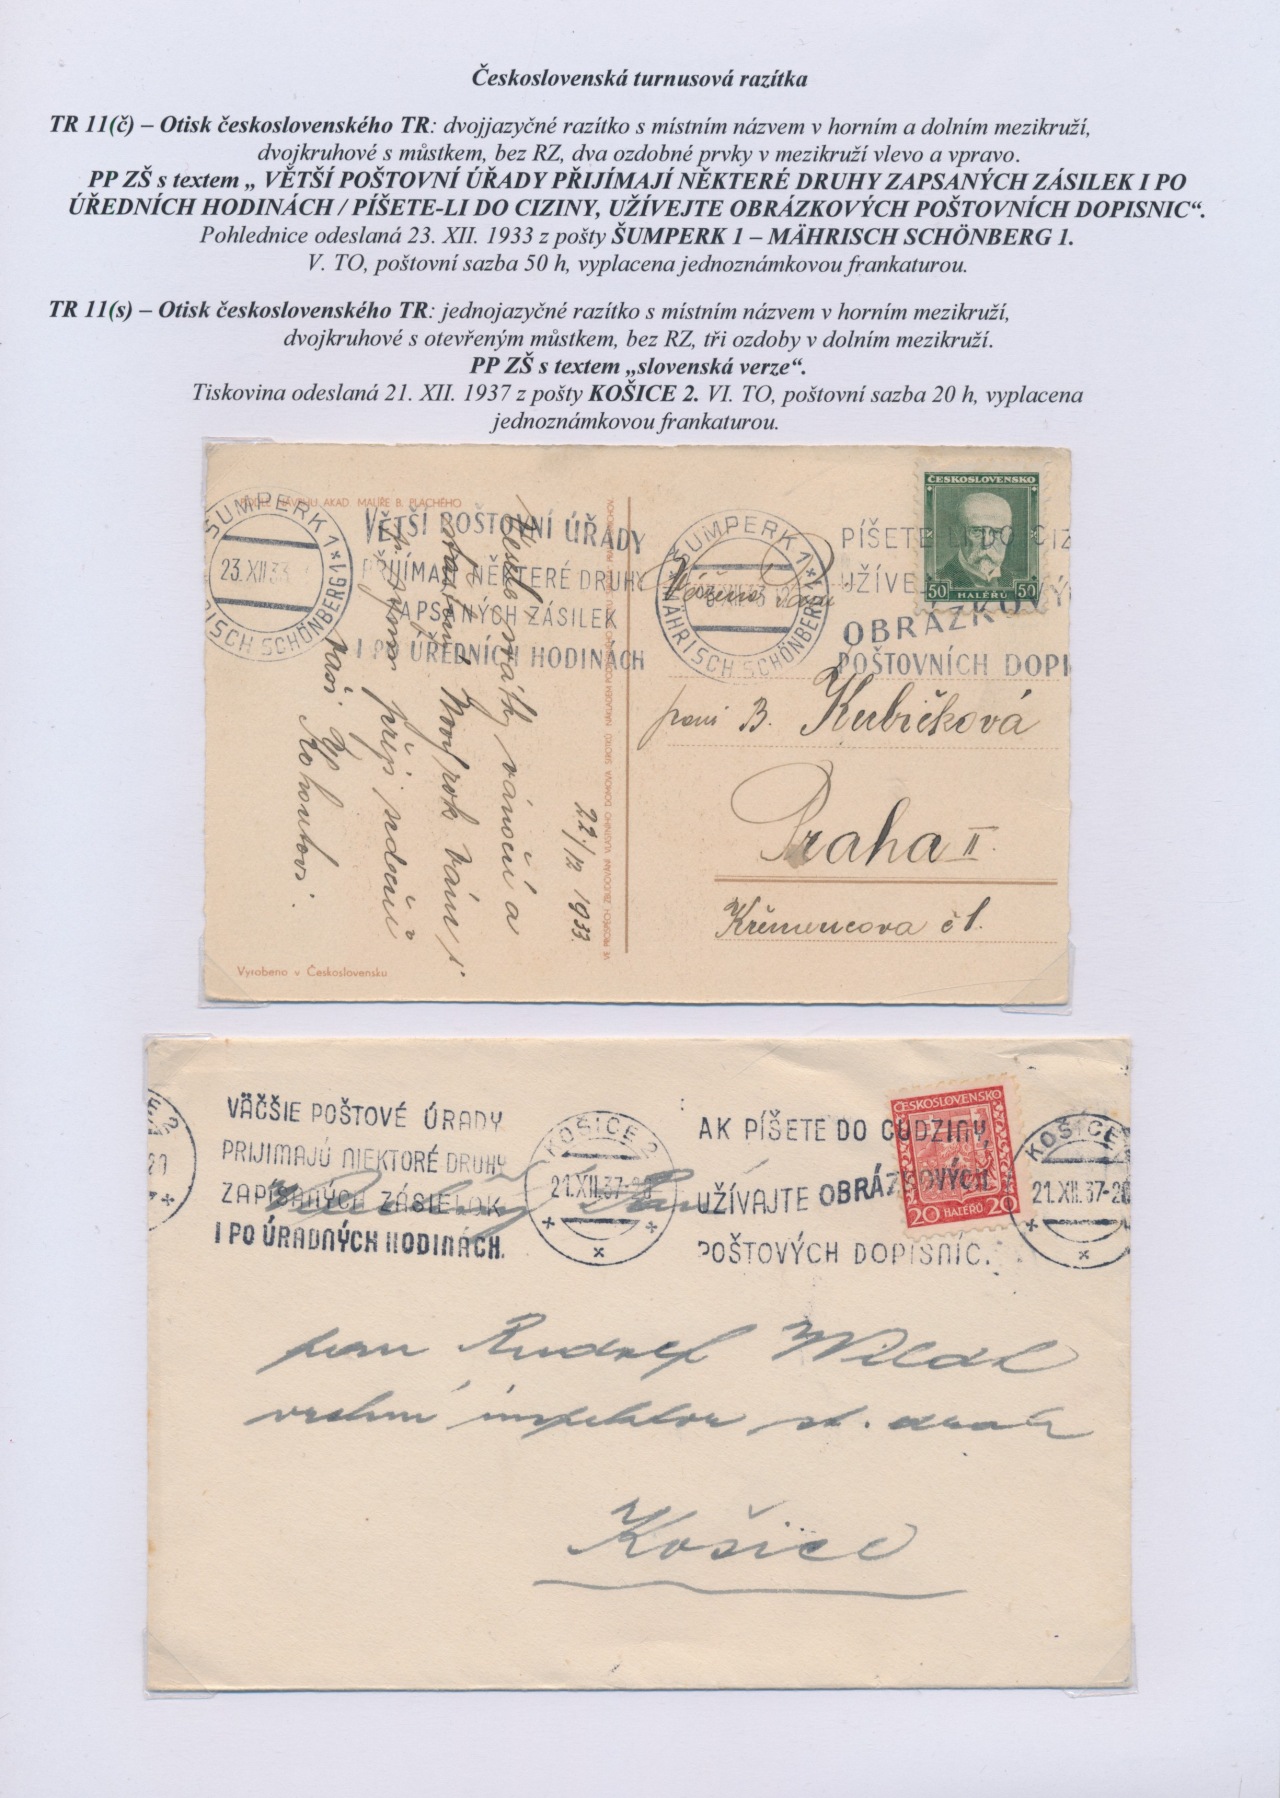 Československá turnusová razítka
TR 11(č) – Otisk československého TR: dvojjazyčné razítko s místním názvem v horním a dolním mezikruží,
dvojkruhové s můstkem, bez RZ, dva ozdobné prvky v mezikruží vlevo a vpravo.
PP ZŠ s textem „ VĚTŠÍ POŠTOVNÍ ÚŘADY PŘIJÍMAJÍ NĚKTERÉ DRUHY ZAPSANÝCH ZÁSILEK I PO
ÚŘEDNÍCH HODINÁCH / PÍŠETE-LI DO CIZINY, UŽÍVEJTE OBRÁZKOVÝCH POŠTOVNÍCH DOPISNIC“.
Pohlednice odeslaná 23. XII. 1933 z pošty ŠUMPERK 1 – MÄHRISCH SCHÖNBERG 1.
V. TO, poštovní sazba 50 h, vyplacena jednoznámkovou frankaturou.
TR 11(s) – Otisk československého TR: jednojazyčné razítko s místním názvem v horním mezikruží,
dvojkruhové s otevřeným můstkem, bez RZ, tři ozdoby v dolním mezikruží.
PP ZŠ s textem „slovenská verze“.
Tiskovina odeslaná 21. XII. 1937 z pošty KOŠICE 2. VI. TO, poštovní sazba 20 h, vyplacena
jednoznámkovou frankaturou.
NÁVRHU AKAD. MALÍŘE B. PLACHÉHO
ŠUMPERK 1
23.XII.33
ISCH SCHÖNBERG 1
VĚTŠÍ POŠTOVNÍ ÚŘADY
PŘIJÍMAJÍ NĚKTERÉ DRUHY
ZAPSANÝCH ZÁSILEK
I PO ÚŘEDNÍCH HODINÁCH
ŠUMPERK 1
MÄHRISCH SCHÖNBERG 1
PÍŠETE LI DO CIZ
UŽÍVEJ
OBRÁZKOVÝ
POŠTOVNÍCH DOPI
ČESKOSLOVENSKO
50 HALÉŘŮ 50
Vážená paní
paní B. Kubíčková
Praha II.
Křemencova č 1.
svátky vánoční a
Nový rok vám i
přejí srdečně
vaši
Kohoutovi.
22./12 1933.
Vyrobeno v Československu
VÄČŠIE POŠTOVÉ ÚRADY
PRIJIMAJÚ NIEKTORÉ DRUHY
ZAPÍSANÝCH ZÁSIELOK
I PO ÚRADNÝCH HODINÁCH.
KOŠICE 2
21.XII.37-20
AK PÍŠETE DO CUDZINY,
UŽÍVAJTE OBRÁZKOVÝCH
POŠTOVÝCH DOPISNÍC.
ČESKOSLOVENSKO
20 HALÉŘŮ 20
KOŠICE
21.XII.37-20
pan Rudolf
vrchní inspektor st. drah
Košice